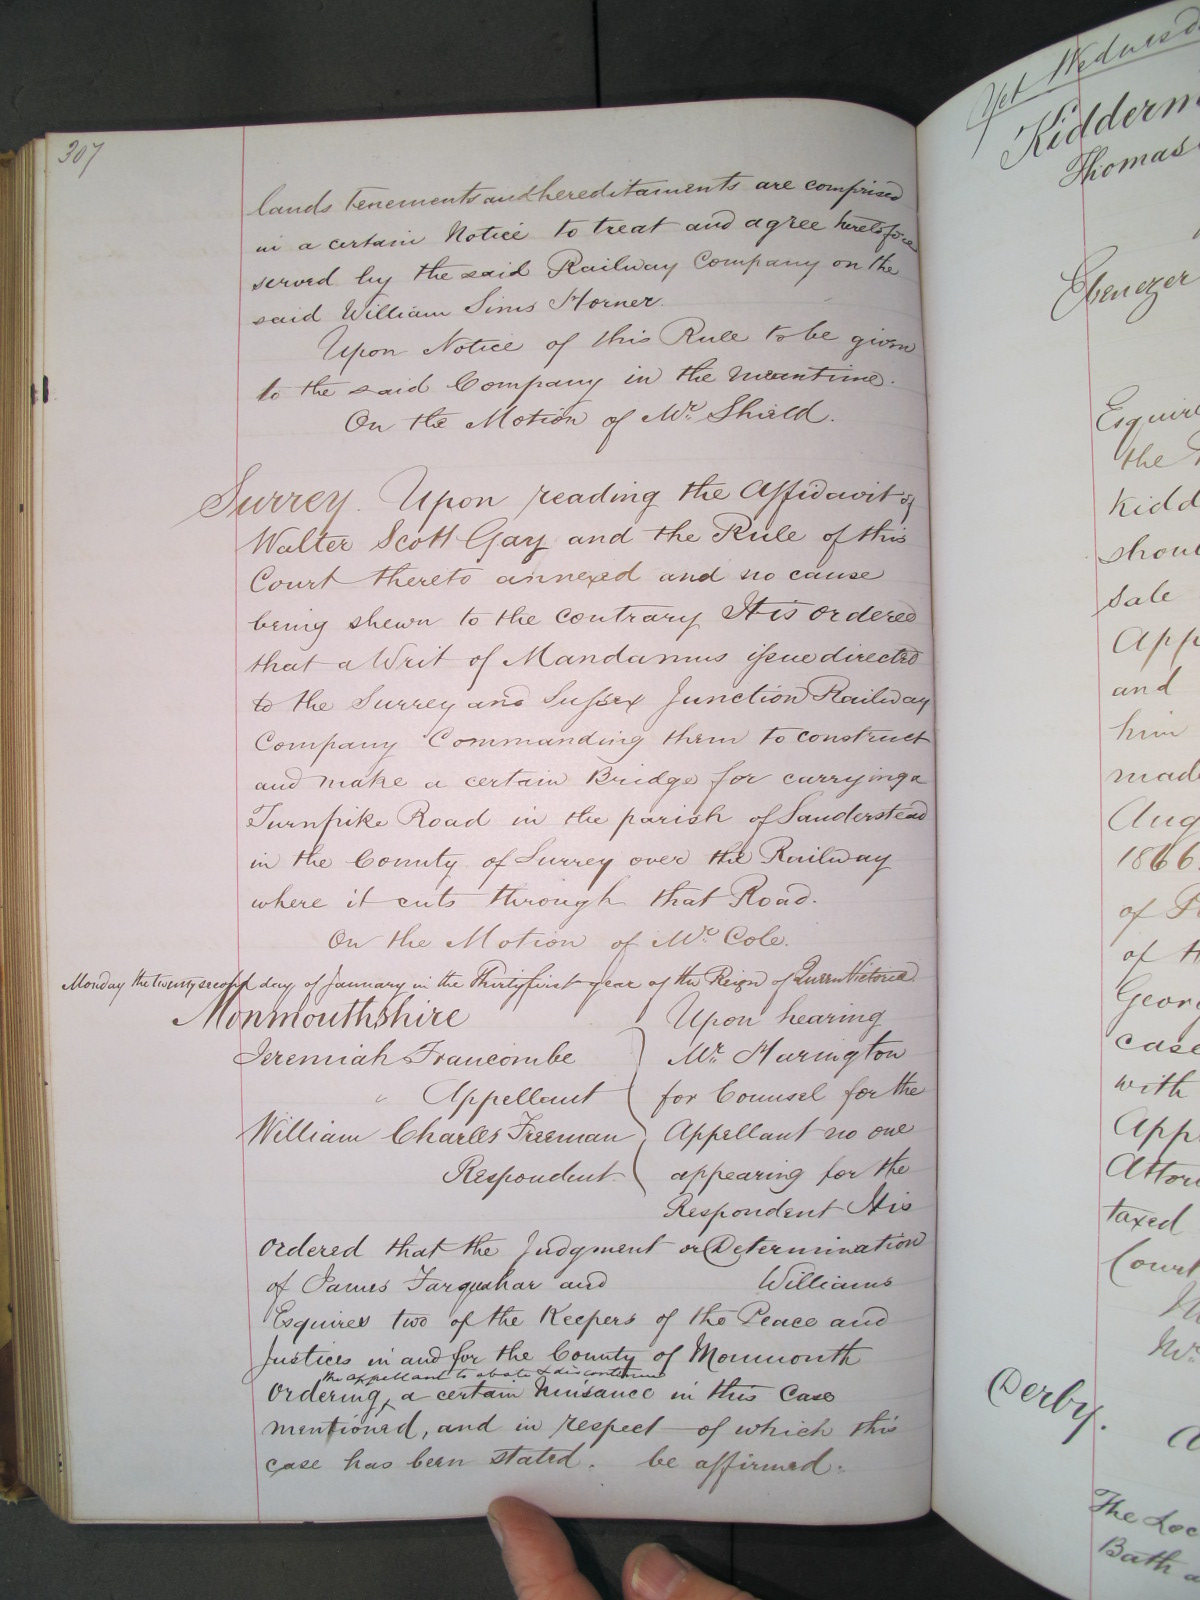 307
lands tenements and hereditaments are comprised
in a certain Notice to treat and agree heretofore
served by the said Railway Company on the
said William Sims Horner.
Upon Notice of this Rule to be given
to the said Company in the meantime.
On the Motion of Mr. Shield.
Surrey. Upon reading the Affidavit of
Walter Scott Gay and the Rule of this
Court thereto annexed and no cause
being shewn to the contrary It is ordered
that a Writ of Mandamus issue directed
to the Surrey and Sussex Junction Railway
Company Commanding them to construct
and make a certain Bridge for carrying a
Turnpike Road in the parish of Sanderstead
in the County of Surrey over the Railway
where it cuts through that Road.
On the Motion of Mr. Cole.
Monday the twenty second day of January in the Thirty first year of the Reign of Queen Victoria.
Monmouthshire
Upon hearing
Jeremiah Francombe
Mr. Harington
Appellant
for Counsel for the
William Charles Freeman
Appellant no one
Respondent.
appearing for the
Respondent It is
ordered that the Judgment or Determination
of James Farquhar and Williams
Esquires two of the Keepers of the Peace and
Justices in and for the County of Monmouth
the appellant to abate & discontinue
ordering a certain Nuisance in this Case
mentioned, and in respect of which this
case has been stated. be affirmed.
Yet Wednesd
Kidderm
Thomas
Ebenezer
Esquire
the
Kidd
shoul
Sale
App
and
him
made
Aug
1866
of
of th
Geor
case
with
App
Attor
taxed
Court
Mr.
Derby.
The Loc
Bath a